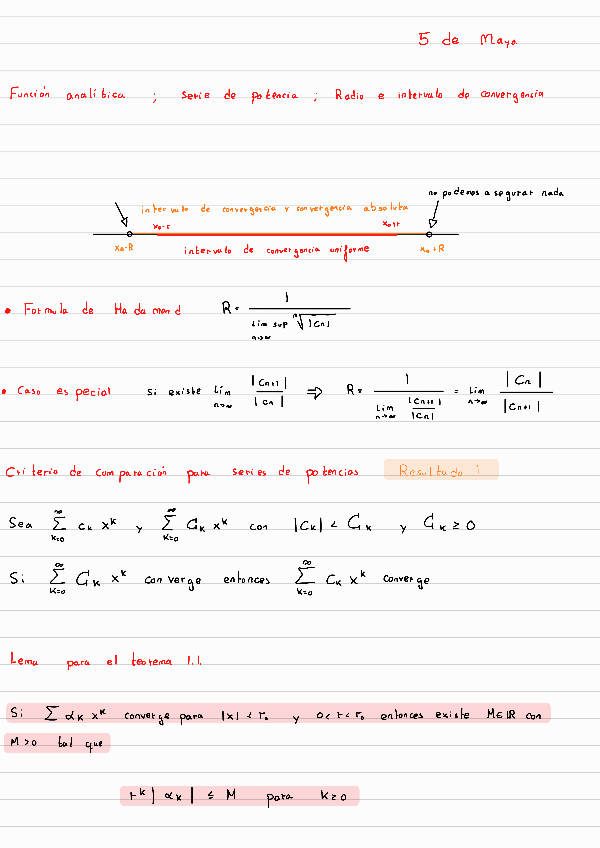 5 de Mayo
Función analítica ; serie de potencia ; Radio e intervalo de convergencia
no podemos asegurar nada
intervalo de convergencia y convergencia absoluta
x₀-r x₀+r
x₀-R intervalo de convergencia uniforme x₀+R
• Formula de Hadamard R = 1 / (lim sup n→∞ ⁿ√|Cn|)
• Caso especial Si existe Lím n→∞ |Cn+1| / |Cn| ⇒ R = 1 / (Lím n→∞ |Cn+1| / |Cn|) = Lím n→∞ |Cn| / |Cn+1|
Criterio de comparación para series de potencias Resultado i
Sea ∑ k=0 ∞ ck x^k y ∑ k=0 ∞ Gk x^k con |Ck| < Gk y Gk ≥ 0
Si ∑ k=0 ∞ Gk x^k converge entonces ∑ k=0 ∞ Ck x^k converge
Lema para el teorema 1.1.
Si ∑ αk x^k converge para |x| < r₀ y 0 < r < r₀ entonces existe M∈ℝ con
M>0 tal que
r^k | αk | ≤ M para k≥0